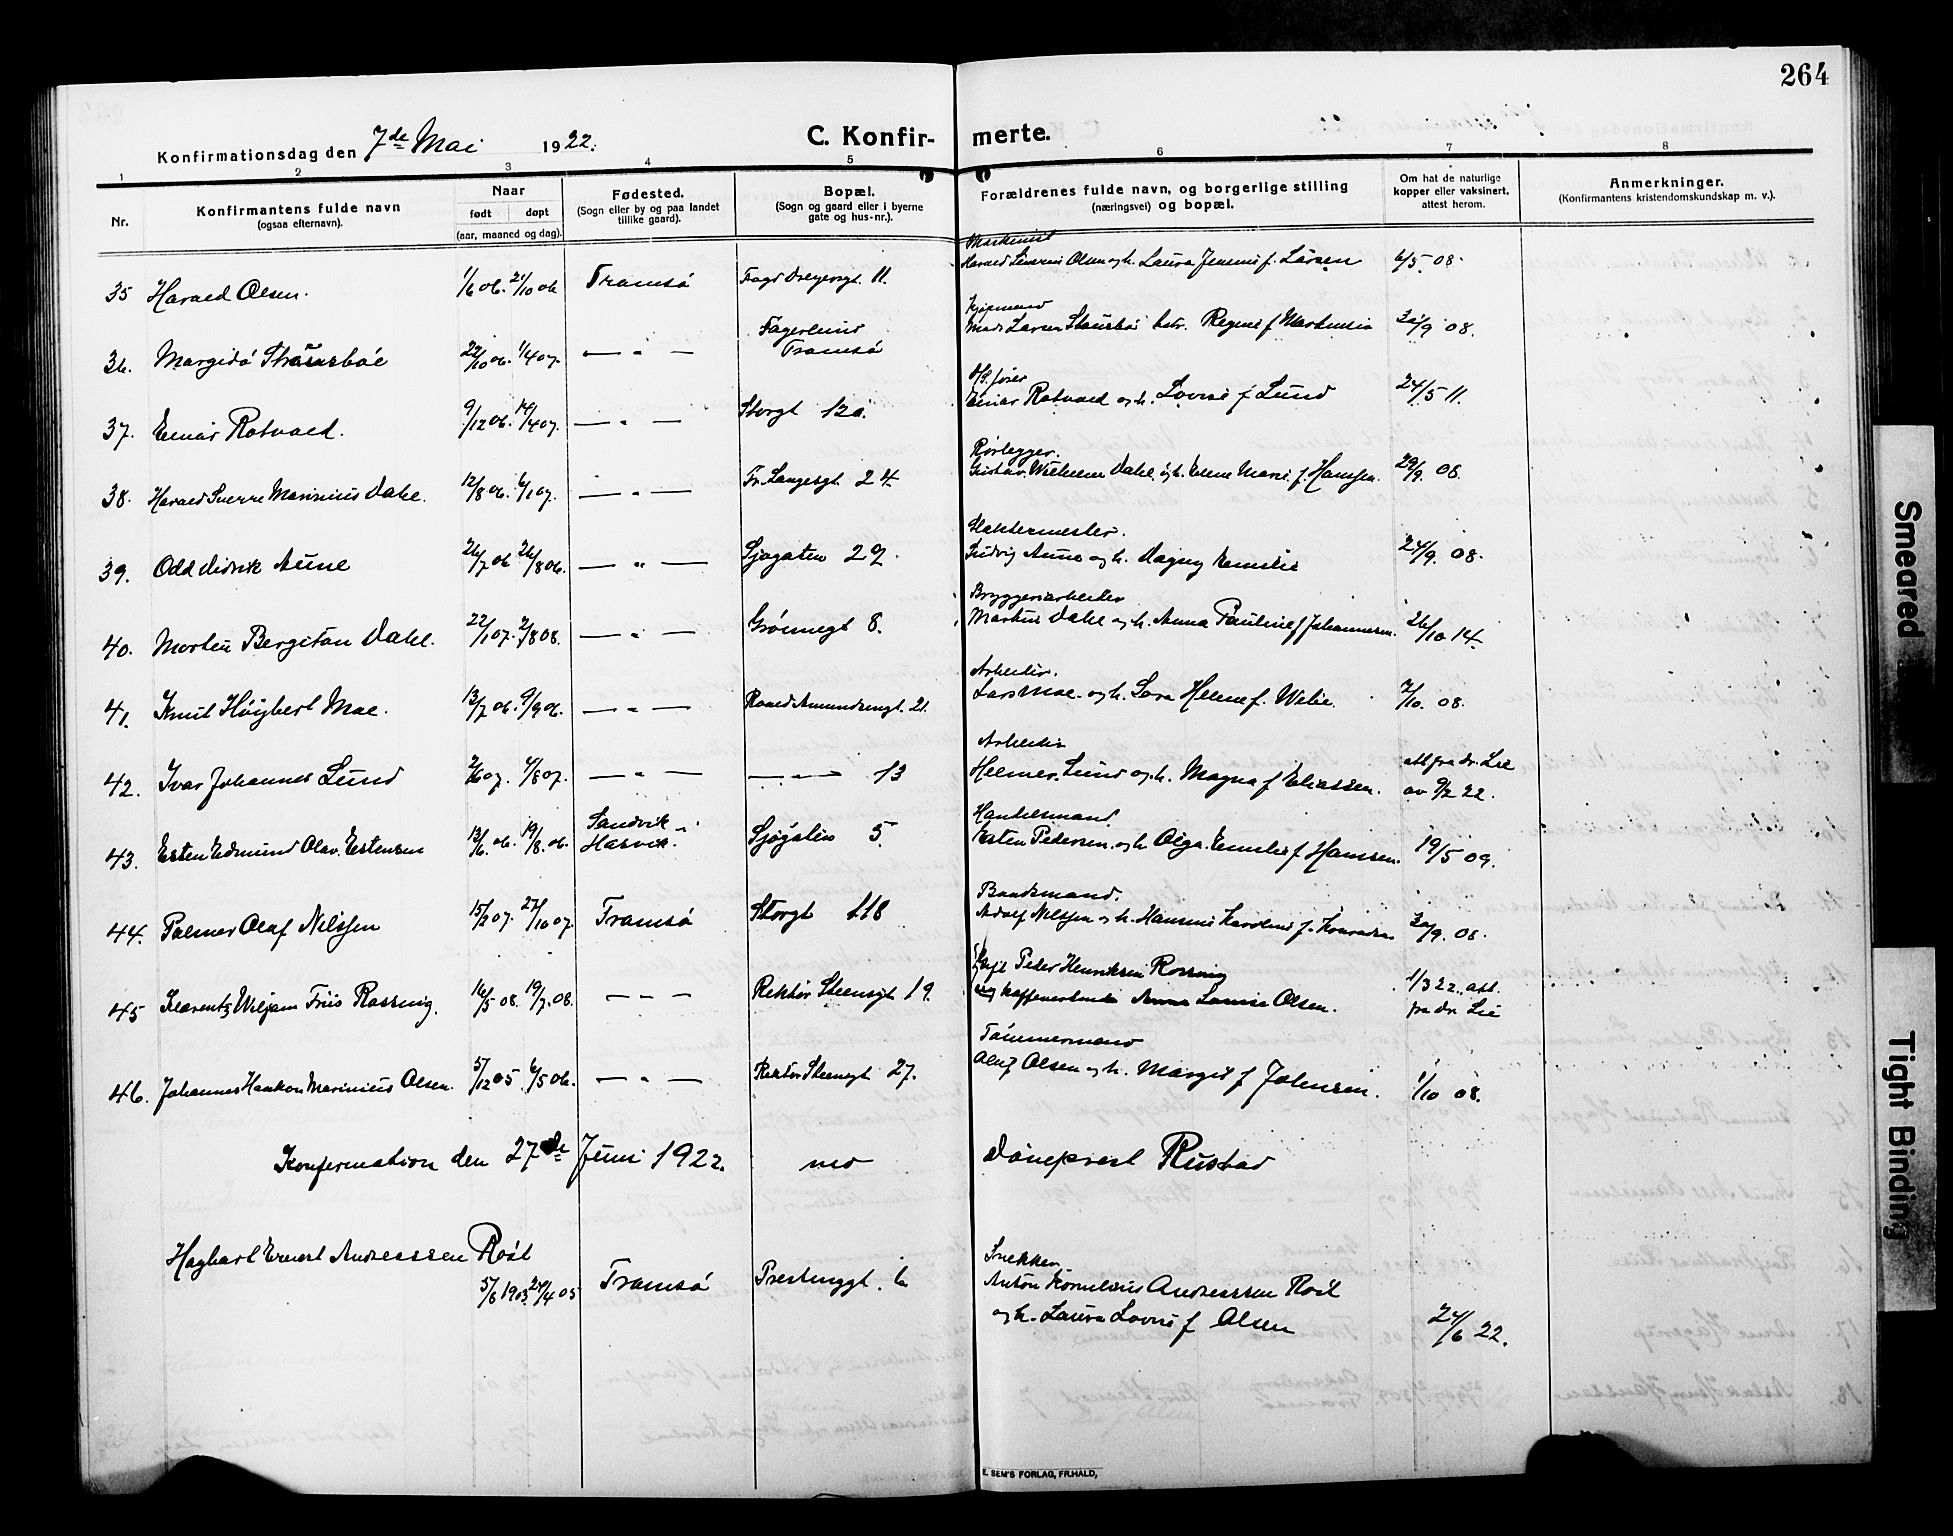 264
Konfirmationsdag den 7de Mai 1922. C. Konfir- merte.
1 2 3 4 5 6 7 8
Nr.
Konfirmantens fulde navn
(ogsaa efternavn).
Naar
født døpt
(aar, maaned og dag).
Fødested.
(Sogn eller by og paa landet
tillike gaard).
Bopæl.
(Sogn og gaard eller i byerne
gate og hus-nr.).
Forældrenes fulde navn, og borgerlige stilling
(næringsvei) og bopæl.
Om hat de naturlige
kopper eller vaksinert,
attest herom.
Anmerkninger.
(Konfirmantens kristendomskundskap m. v.).
Maskinist
35 Harald Olsen. 1/6 06. 21/10 06 Tromsø 11. Harald Severin Olsen og h. Laura Jensine f. Larsen 6/5 08.
Kjøpmand
36. Margido 22/10 06. 1/4 07. — " — Fagerlund Tromsø Mads Larsen 08.
37. Einar Rotvold. 9/12 06. 14/4 07. — " — Storgt 120. Einar Rotvold og h. Lovise f Lund 24/5 11.
Rørlegger.
38. Harald Sverre Marinius Dahl. 12/8 06. 6/1 07. — " — Fr. Langesgt 24. Gustav Wilhelm Dahl og h. Elene Marie f. Hansen. 29/9 08.
Slaktermester.
39. Odd Didrik Aune 26/7 06. 26/8 06. — " — Sjøgaten 29. Ludvig Aune og h. Dagny Emilie 24/9. 08.
Bryggeriarbeider
40. Morten Bergiton Dahl. 22/1 07. 2/8 08. — " — Grønnegt 8. Markus Dahl og h. Anna Pauline f Johannesen. 26/10 14.
Arbeider.
41. Knut Høigbert Moe. 13/7 06. 9/9 06. — " — Roald Amundsensgt. 21. Lars Moe og h. Sara Helene f. 7/10. 08.
Arbeider
42. Ivar Johannes Lund 07. 4/8 07. — " — — " — 13 Helmer Lund og h. Magna f Eliassen. att fra dr. Lie
av 9/2 22.
Handelsmand
43. Esten Edmund Olav. Estensen 13/6. 06. 19/8. 06. Sandvik
Hasvik. Sjøgaten 5 Esten Pedersen og h Olga Emilie f Hansen. 19/5 09.
Baadsmand.
44. Palmer Olaf Nilssen 15/2 07. 27/10 07 Tromsø Storgt 118 Adolf Nilssen og h. Hansine Karoline f. 08.
45 Klarentz Wiljam Friis Rossing. 16/5 08. 19/7. 08. — " — Rektor Steensgt 19. Peder Henriksen Rossing
Louise Olsen. 1/3 22. att.
fra dr. Lie
Tømmermand
46. Johannes Haakon Marinius Olsen. 5/12 05. 6/5 06. — " — Rektor Steensgt 27. Oluf Olsen og h. Margit f Johnsen. 1/10 08.
Konfirmation den 27de Juni 1922. ved Døveprest Rustad
Hagbart Ernst Andreassen Røst
5/8 1903 24/4 05 Tromsø 6 Snekker
Anton Kornelius Andreassen Røst
og h. Laura Lovise f Olsen 24/6 22.
E. SEM'S FORLAG, FR.HALD,
Smeared
Tight Binding